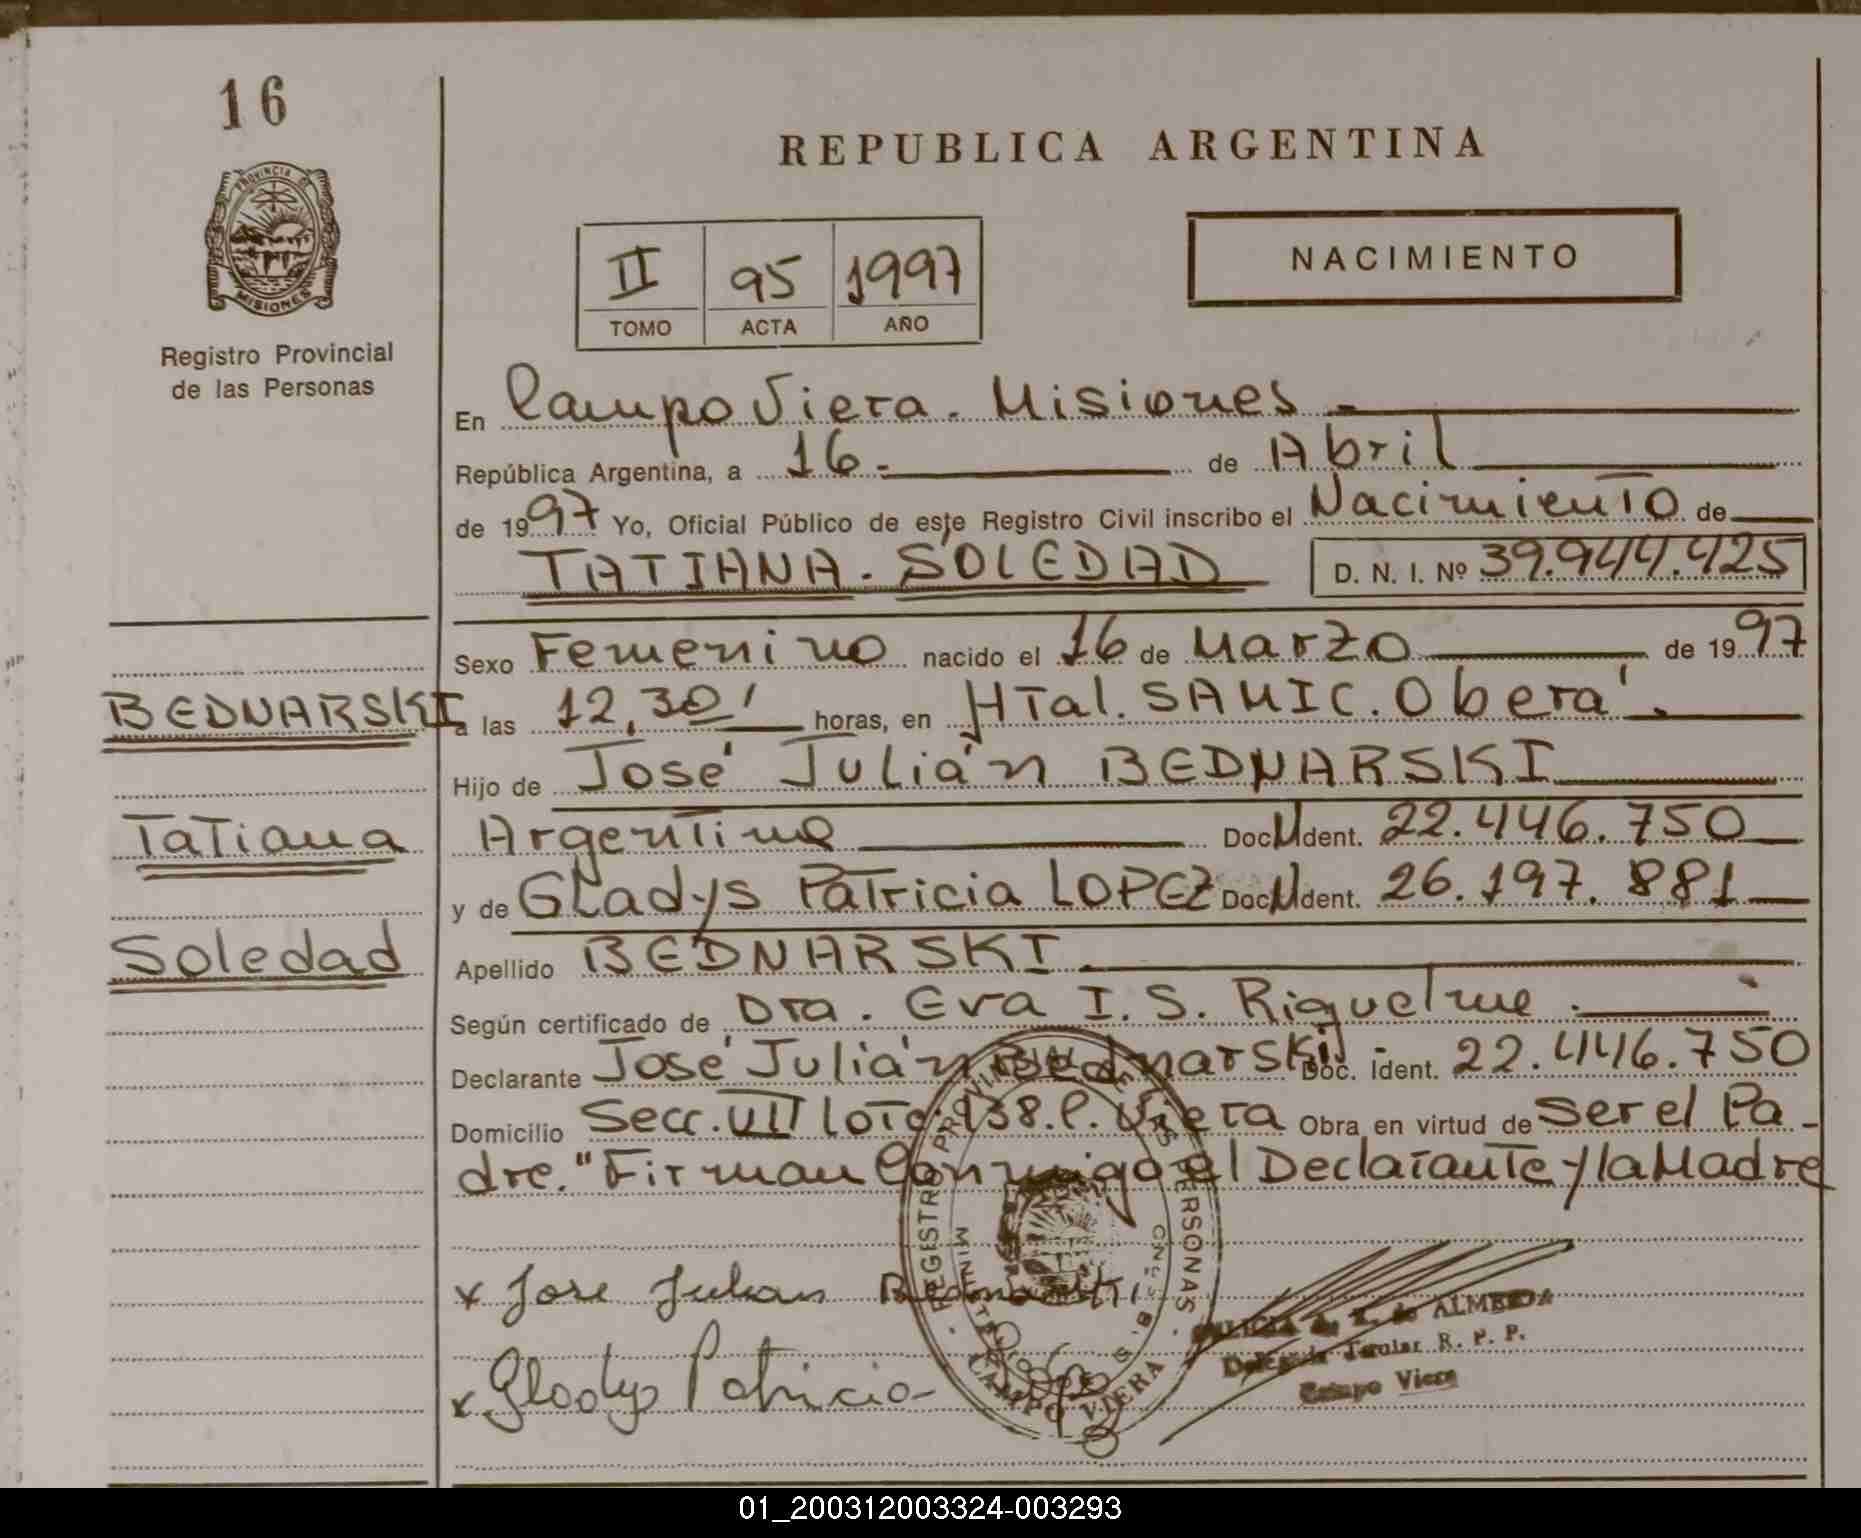 16
PROVINCIA DE
MISIONES
Registro Provincial
de las Personas
REPUBLICA ARGENTINA
II 95 1997
TOMO ACTA AÑO
NACIMIENTO
En Campo Viera. Misiones.
República Argentina, a 16 de Abril
de 1997 Yo, Oficial Público de este Registro Civil inscribo el Nacimiento de
TATIANA. SOLEDAD D. N. I. Nº 39.944.425
Sexo Femenino nacido el 16 de Marzo de 1997
BEDNARSKI
a las 12,30' horas, en HTal. SAMIC. Oberá.
Hijo de José Julián BEDNARSKI
Tatiana
Argentino Doc. Ident. 22.446.750
y de Gladys Patricia LOPEZ Doc. Ident. 26.197.881
Soledad
Apellido BEDNARSKI
Según certificado de Dra. Eva I. S. Riquelme.
Declarante José Julián Bednarski Doc. Ident. 22.446.750
Domicilio Secc. VII Lote 938. C. Viera Obra en virtud de Ser el Pa-
dre." Firman Conmigo el Declarante y la Madre
x Jose Julian Bednarski
x Gladys Patricia
REGISTRO PROVINCIAL DE LAS PERSONAS
CAMPO VIERA
de ALMEIDA
Delegada Titular R. P. P.
Campo Viera
01_200312003324-003293